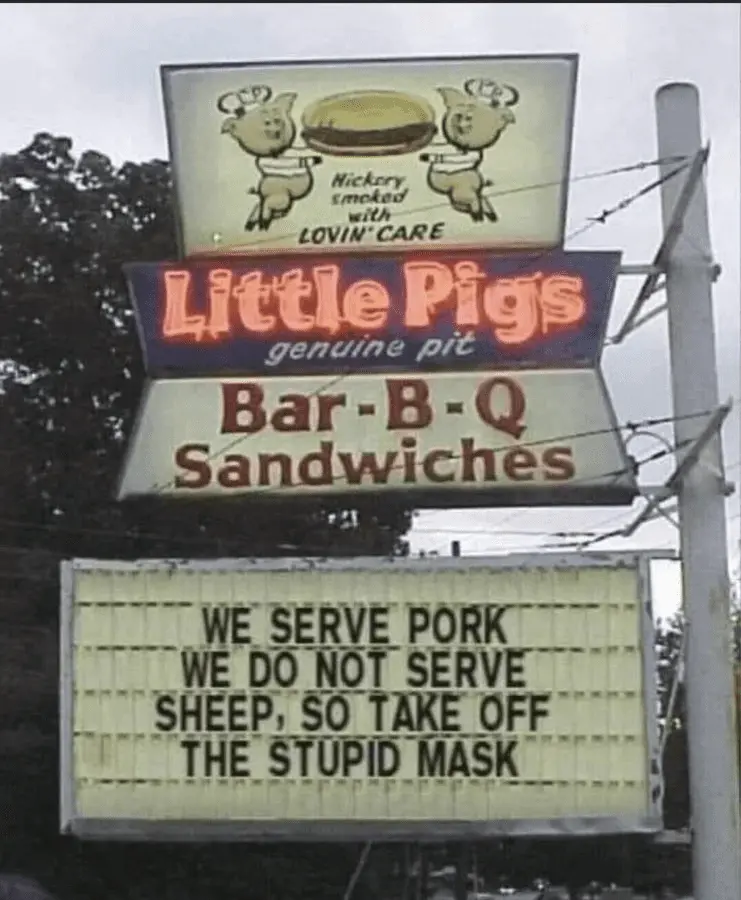 Hickory
smoked
with
LOVIN' CARE
Little Pigs
genuine pit
Bar-B-Q
Sandwiches
WE SERVE PORK
WE DO NOT SERVE
SHEEP, SO TAKE OFF
THE STUPID MASK